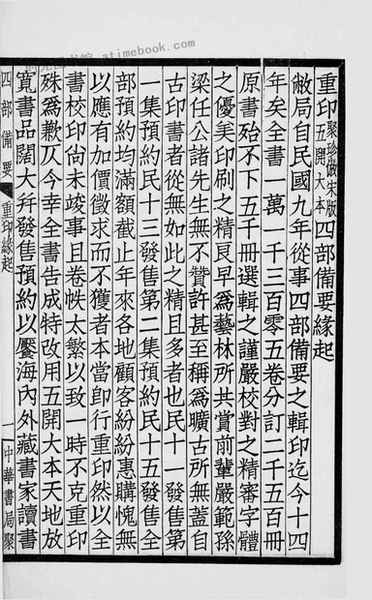 atimebook.com
重印聚珍倣宋版五開大本四部備要緣起
敝局自民國九年從事四部備要之輯印迄今十四
年矣全書一萬一千三百零五卷分訂二千五百冊
原書殆不下五千冊選輯之謹嚴校對之精審字體
之優美印刷之精良早爲藝林所共賞前輩嚴範孫
梁任公諸先生無不贊許甚至稱爲曠古所無蓋自
古印書者從無如此之精且多者也民十一發售第
一集預約民十三發售第二集預約民十五發售全
部預約均滿額截止年來各地顧客紛紛惠購愧無
以應有加價徵求而不獲者本當即行重印然以全
書校印尙未竣事且卷帙太繁以致一時不克重印
殊爲歉仄今幸全書告成特改用五開大本天地放
寬書品闊大幷發售預約以饜海內外藏書家讀書
四部備要 重印緣起 一 中華書局聚